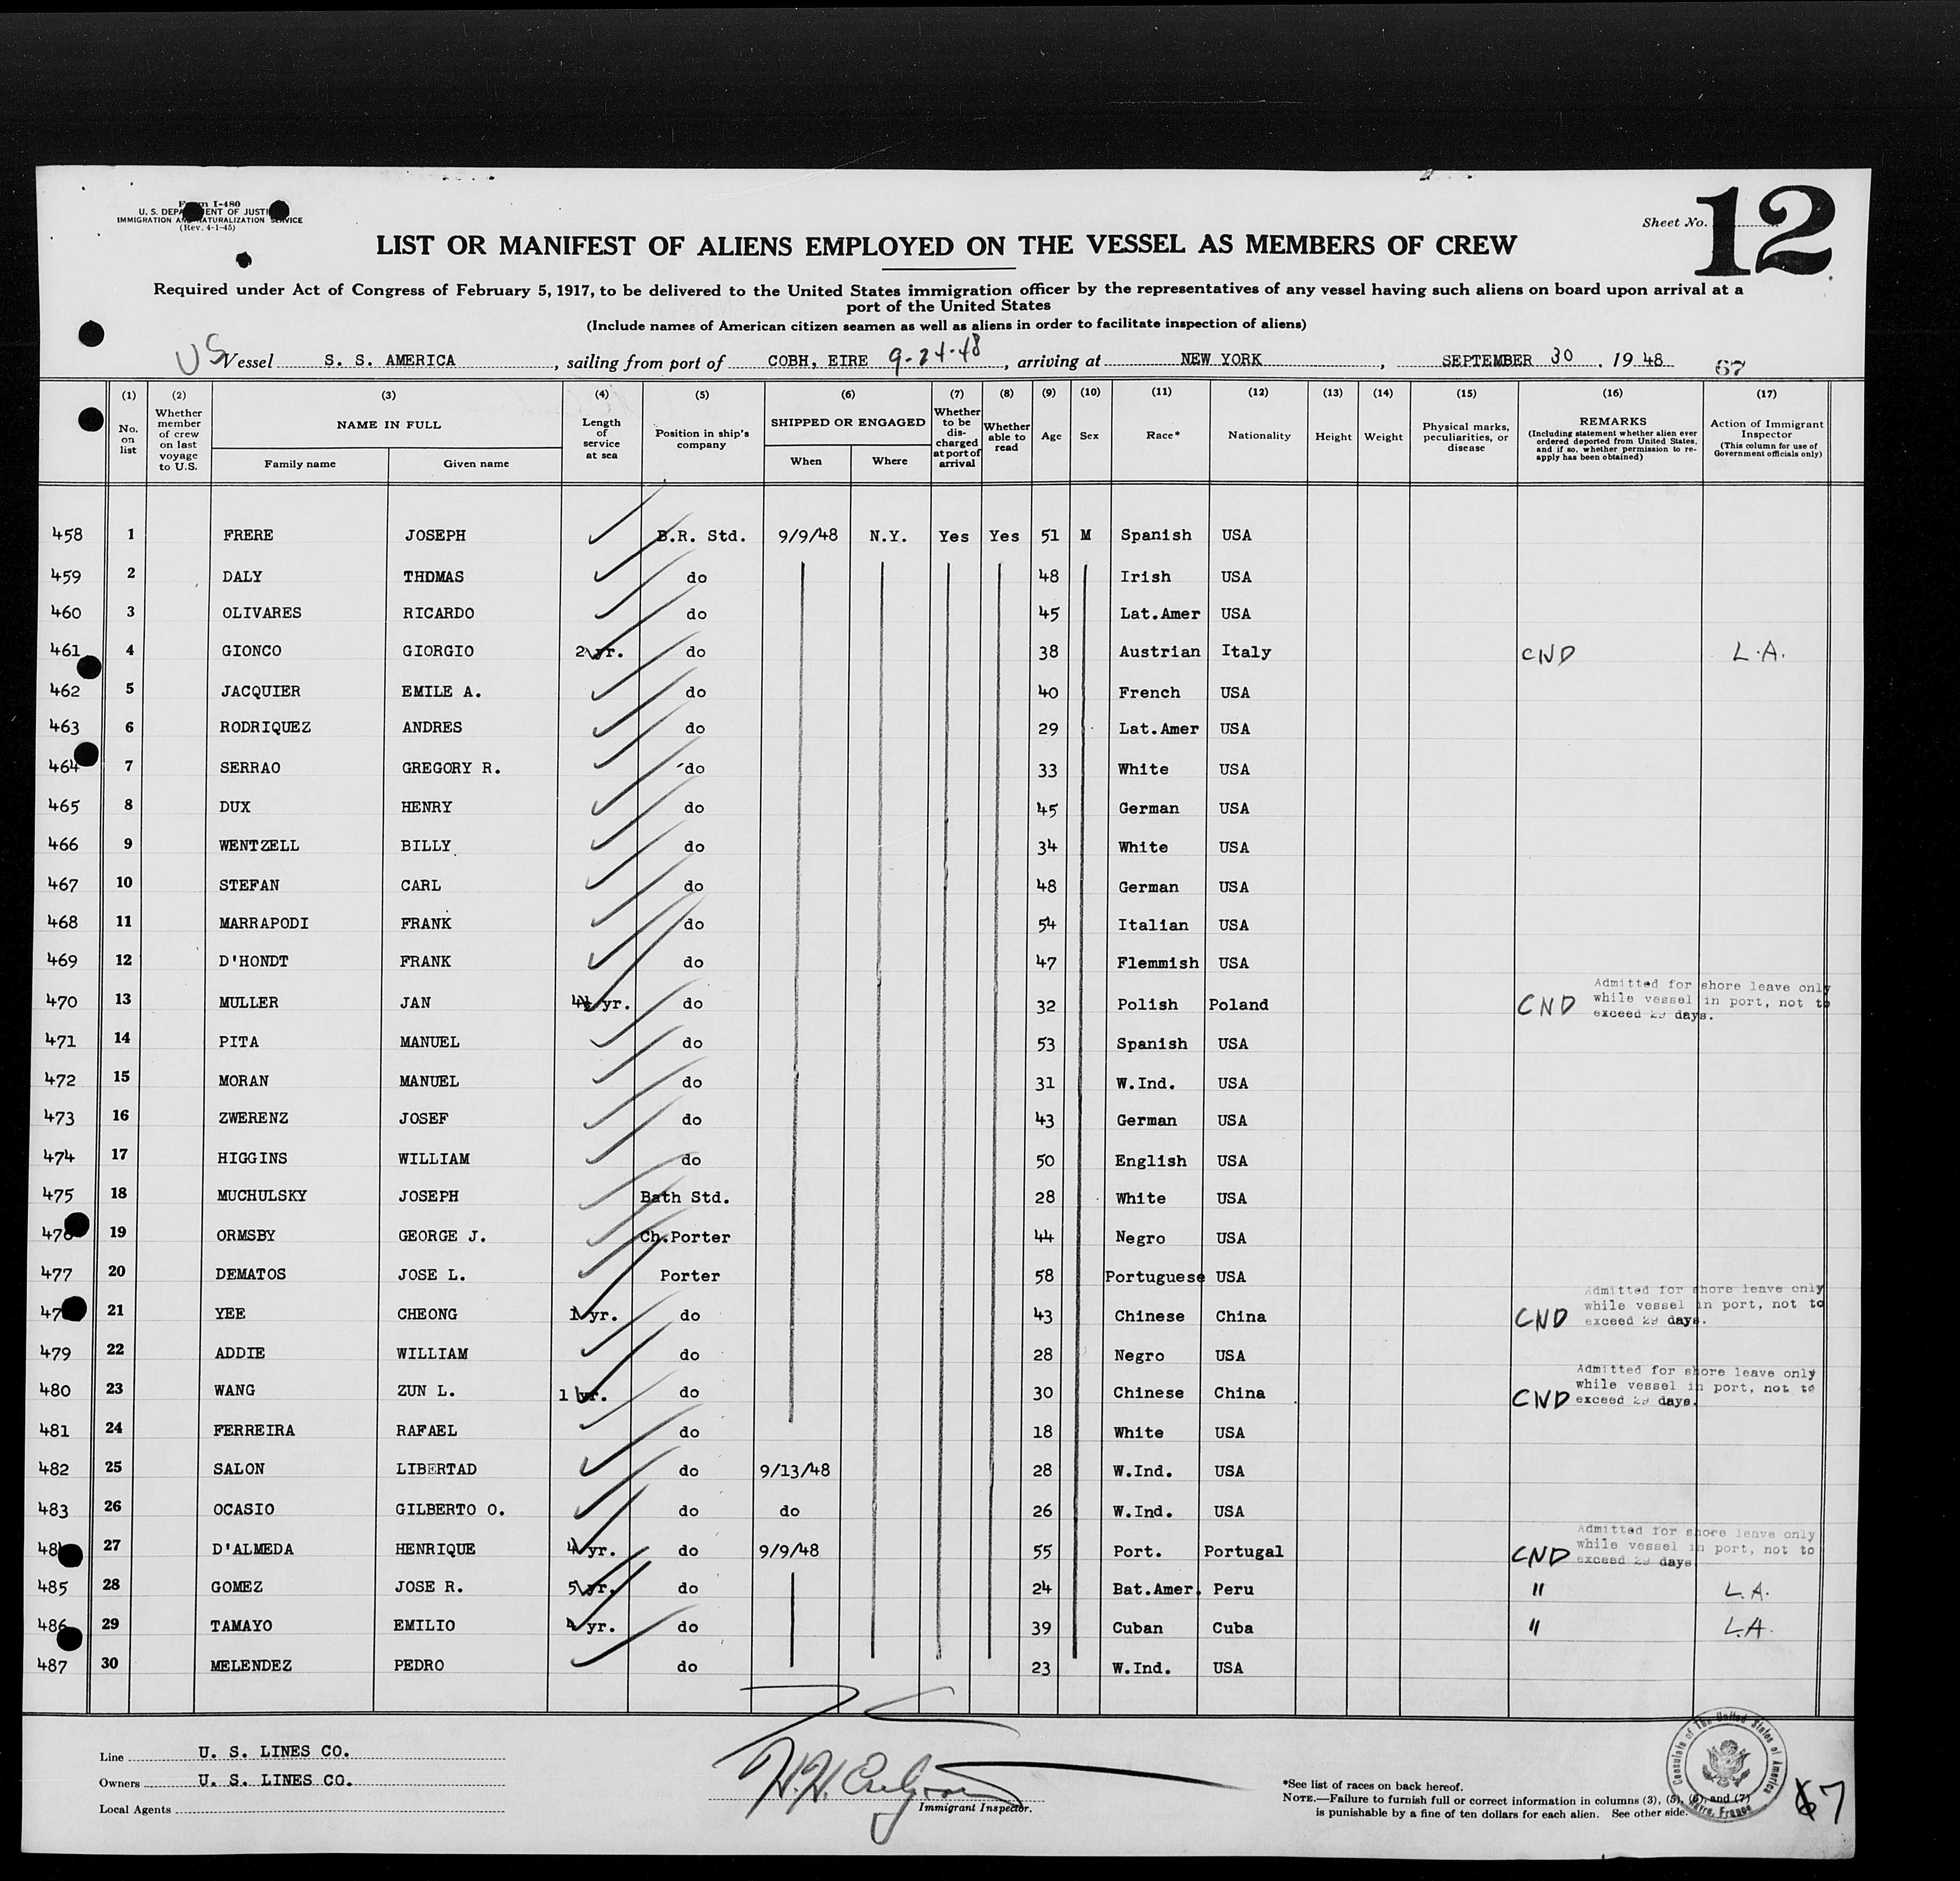 Form I-480
U. S. DEPARTMENT OF JUSTICE
IMMIGRATION AND NATURALIZATION SERVICE
(Rev. 4-1-45)
Sheet No. 12
LIST OR MANIFEST OF ALIENS EMPLOYED ON THE VESSEL AS MEMBERS OF CREW
Required under Act of Congress of February 5, 1917, to be delivered to the United States immigration officer by the representatives of any vessel having such aliens on board upon arrival at a
port of the United States
(Include names of American citizen seamen as well as aliens in order to facilitate inspection of aliens)
US Vessel S. S. AMERICA, sailing from port of COBH, EIRE 9-24-48, arriving at NEW YORK, SEPTEMBER 30, 1948 67
(1) (2) (3) (4) (5) (6) (7) (8) (9) (10) (11) (12) (13) (14) (15) (16) (17)
No. on list
Whether member of crew on last voyage to U.S.
NAME IN FULL
Family name
Given name
Length of service at sea
Position in ship's company
SHIPPED OR ENGAGED
When
Where
Whether to be discharged at port of arrival
Whether able to read
Age
Sex
Race*
Nationality
Height
Weight
Physical marks, peculiarities, or disease
REMARKS
(Including statement whether alien ever ordered deported from United States, and if so, whether permission to re-apply has been obtained)
Action of Immigrant Inspector
(This column for use of Government officials only)
458 1 FRERE JOSEPH B.R. Std. 9/9/48 N.Y. Yes Yes 51 M Spanish USA
459 2 DALY THOMAS do 48 Irish USA
460 3 OLIVARES RICARDO do 45 Lat.Amer USA
461 4 GIONCO GIORGIO 2 yr. do 38 Austrian Italy CND L.A.
462 5 JACQUIER EMILE A. do 40 French USA
463 6 RODRIQUEZ ANDRES do 29 Lat.Amer USA
464 7 SERRAO GREGORY R. do 33 White USA
465 8 DUX HENRY do 45 German USA
466 9 WENTZELL BILLY do 34 White USA
467 10 STEFAN CARL do 48 German USA
468 11 MARRAPODI FRANK do 54 Italian USA
469 12 D'HONDT FRANK do 47 Flemmish USA
470 13 MULLER JAN yr. do 32 Polish Poland CND Admitted for shore leave only while vessel in port, not to exceed 29 days.
471 14 PITA MANUEL do 53 Spanish USA
472 15 MORAN MANUEL do 31 W.Ind. USA
473 16 ZWERENZ JOSEF do 43 German USA
474 17 HIGGINS WILLIAM do 50 English USA
475 18 MUCHULSKY JOSEPH Bath Std. 28 White USA
476 19 ORMSBY GEORGE J. Ch.Porter 44 Negro USA
477 20 DEMATOS JOSE L. Porter 58 Portuguese USA
47 21 YEE CHEONG 1 yr. do 43 Chinese China CND Admitted for shore leave only while vessel in port, not to exceed 29 days.
479 22 ADDIE WILLIAM do 28 Negro USA
480 23 WANG ZUN L. 1 yr. do 30 Chinese China CND Admitted for shore leave only while vessel in port, not to exceed 29 days.
481 24 FERREIRA RAFAEL do 18 White USA
482 25 SALON LIBERTAD do 9/13/48 28 W.Ind. USA
483 26 OCASIO GILBERTO O. do do 26 W.Ind. USA
48 27 D'ALMEDA HENRIQUE 4 yr. do 9/9/48 55 Port. Portugal CND Admitted for shore leave only while vessel in port, not to exceed 29 days
485 28 GOMEZ JOSE R. 5 yr. do 24 Bat.Amer. Peru " L.A.
486 29 TAMAYO EMILIO 4 yr. do 39 Cuban Cuba " L.A.
487 30 MELENDEZ PEDRO do 23 W.Ind. USA
Line U. S. LINES CO.
Owners U. S. LINES CO.
Local Agents
Immigrant Inspector.
*See list of races on back hereof.
NOTE.—Failure to furnish full or correct information in columns (3), (5), (6), and (7)
is punishable by a fine of ten dollars for each alien. See other side.
Consulate of The United States of America
Havre, France
67